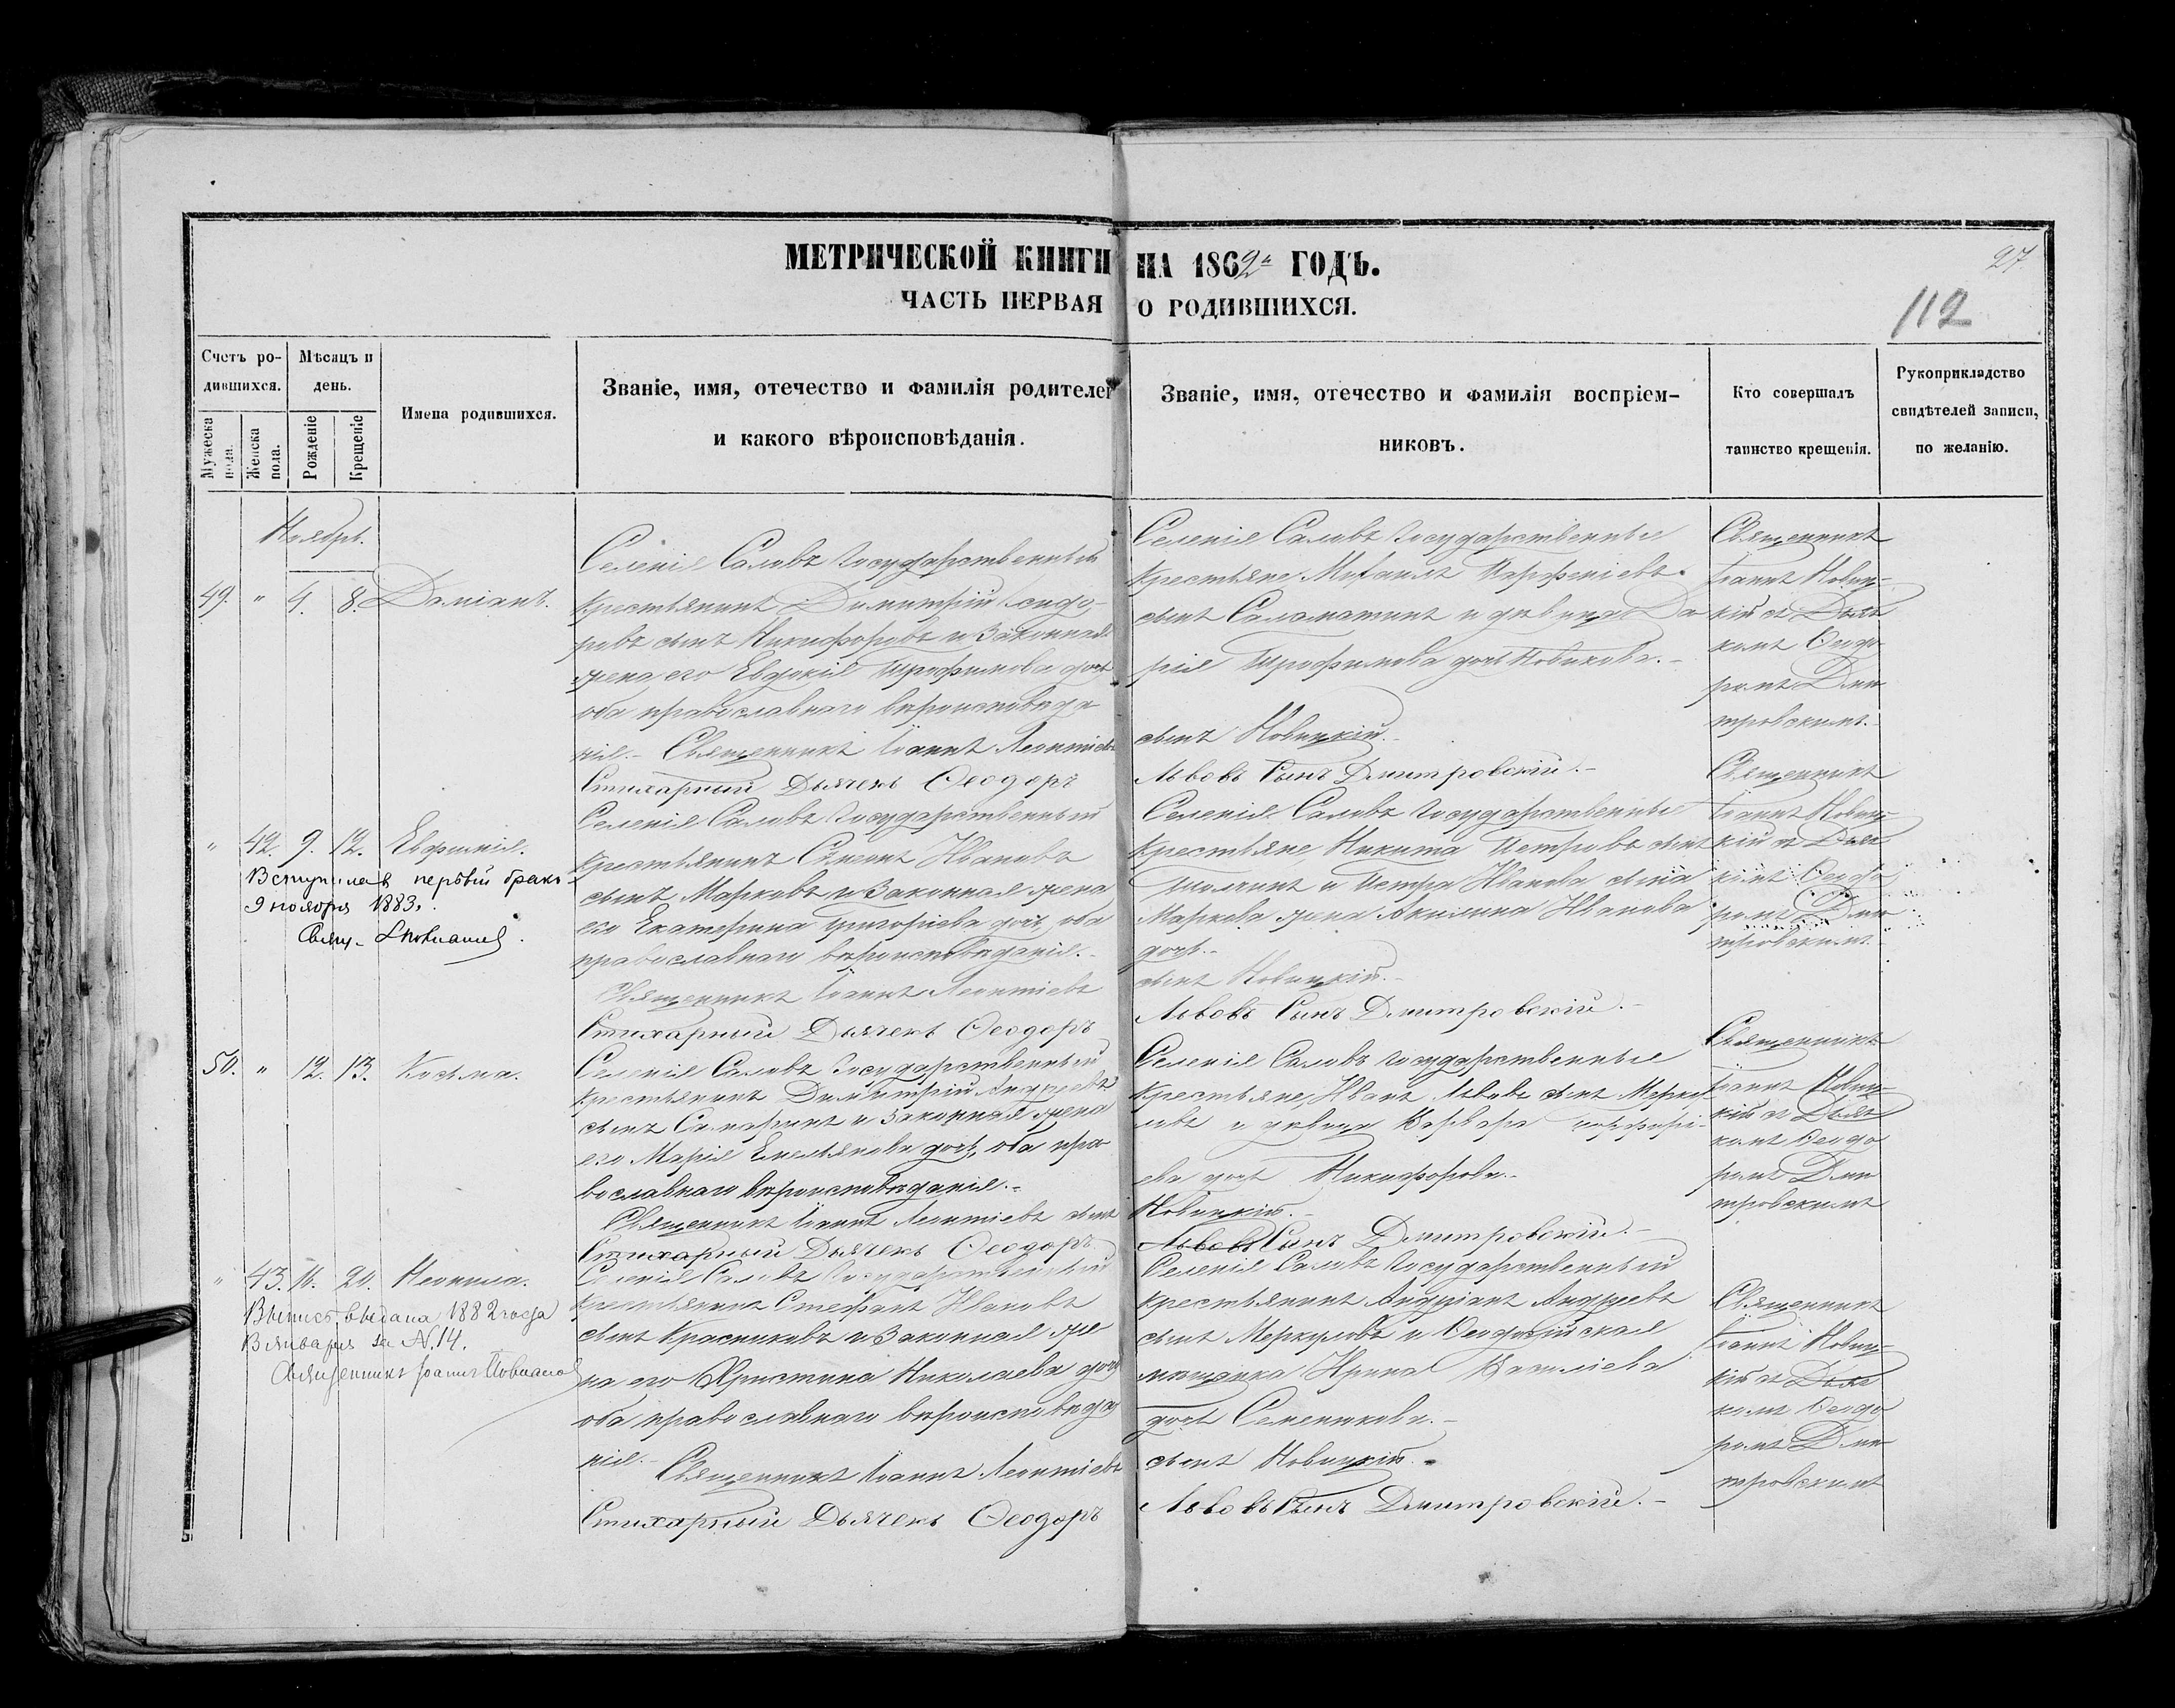 МЕТРИЧЕСКОЙ КНИГИ НА 1862й ГОДЪ.
27.
ЧАСТЬ ПЕРВАЯ О РОДИВШИХСЯ.
112
Счетъ ро-
дившихся.
Мужеска пола.
Женска пола.
Мѣсяцъ и
день.
Рожденіе
Крещеніе
Имена родившихся.
Званіе, имя, отечество и фамилія родителей
и какого вѣроисповѣданія.
Званіе, имя, отечество и фамилія воспріем-
никовъ.
Кто совершалъ
таинство крещенія.
Рукоприкладство
свидѣтелей записи,
по желанію.
Ноябрь.
49. " 4. 8. Даміанъ.
Селенія Саловъ Государственный
крестьянинъ Димитрій Исидо-
ровъ сынъ Никифоровъ и законная
жена его Евдокія Трофимова дочь
оба православнаго вѣроисповѣда-
нія.- Священникъ Іоаннъ Леонтіевъ
Стихарный Дьячекъ Ѳеодоръ
Селенія Саловъ Государственные
крестьяне Михаилъ
сынъ Саломатинъ и дѣвица Да-
рія Трофимова дочь Новикова.-
сынъ Новицкій.-
Львовъ Сынъ Дмитровскій.-
Священникъ
Іоаннъ Новиц-
кій съ Дьяч-
комъ Ѳеодо
ромъ Дми
тровскимъ.
" 42. 9. 12. Евфимія.
Вступила в первый бракъ
9 ноября 1883.
Свящ.
Селенія Саловъ Государственный
крестьянинъ Симеонъ Ивановъ
сынъ Марковъ и законная жена
его Екатерина Григоріева дочь, оба
православнаго вѣроисповѣданія.-
Священникъ Іоаннъ Леонтіевъ
Стихарный Дьячекъ Ѳеодоръ
Селенія Саловъ Государственные
крестьяне, Никита Петровъ сынъ
и Петра Иванова сына
Маркова жена Акилина Иванова
дочь.-
сынъ Новицкій.-
Львовъ Сынъ Дмитровскій.-
Священникъ
Іоаннъ Новиц-
кій съ Дьяч
комъ Ѳеодо
ромъ Дми
тровскимъ.
50. " 12. 13. Косьма.
Селенія Саловъ Государственный
крестьянинъ Димитрій Андреевъ
сынъ Самаринъ и законная жена
его Марія Емельянова дочь, оба пра
вославнаго вѣроисповѣданія.-
Священникъ Іоаннъ Леонтіевъ сынъ
Стихарный Дьячекъ Ѳеодоръ
Селенія Саловъ Государственные
крестьяне, Иванъ Львовъ сынъ Мерку
ловъ и дѣвица Варвара Порфирі-
ева дочь Никифорова.-
Новицкій.-
Львовъ Сынъ Дмитровскій.-
Священникъ
Іоаннъ Новиц-
кій съ Дьяч
комъ Ѳеодо
ромъ Дми
тровскимъ
" 43. 16. 20. Неонила.
Выпись выдана 1882 года
января за N. 14.
Священникъ Іоаннъ
Селенія Саловъ Государственный
крестьянинъ Стефанъ Ивановъ
сынъ Красниковъ и законная же
на его Христина Николаева дочь
оба православнаго вѣроисповѣда
нія.- Священникъ Іоаннъ Леонтіевъ
Стихарный Дьячекъ Ѳеодоръ
Селенія Саловъ Государственный
крестьянинъ Андріанъ Андреевъ
сынъ Меркуловъ и Ѳеодосійская
мѣщанка Ирина Василіева
дочь Семенкова.-
сынъ Новицкій.-
Львовъ Сынъ Дмитровскій.-
Священникъ
Іоаннъ Новиц-
кій съ Дьяч
комъ Ѳеодо
ромъ Дми
тровскимъ